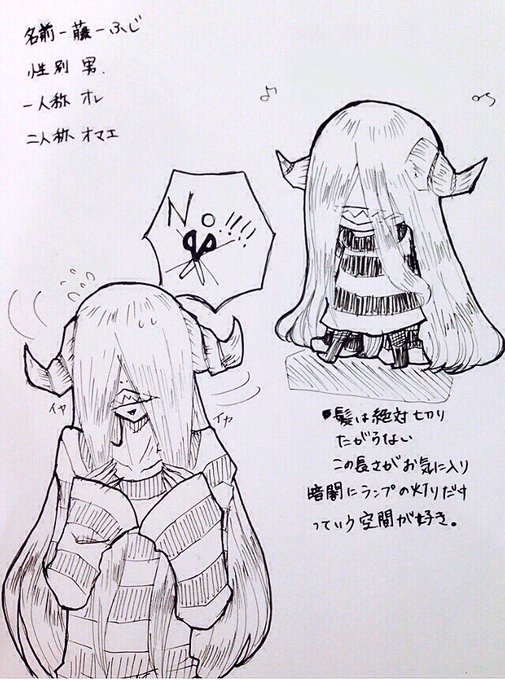 名前ー藤ーふじ
性別 男.
一人称 オレ
二人称 オマエ
No!!!!
イヤ
イヤ
髪は絶対切り
たがらない
この長さがお気に入り
暗闇にランプの灯りだす
っていう空間が好き。